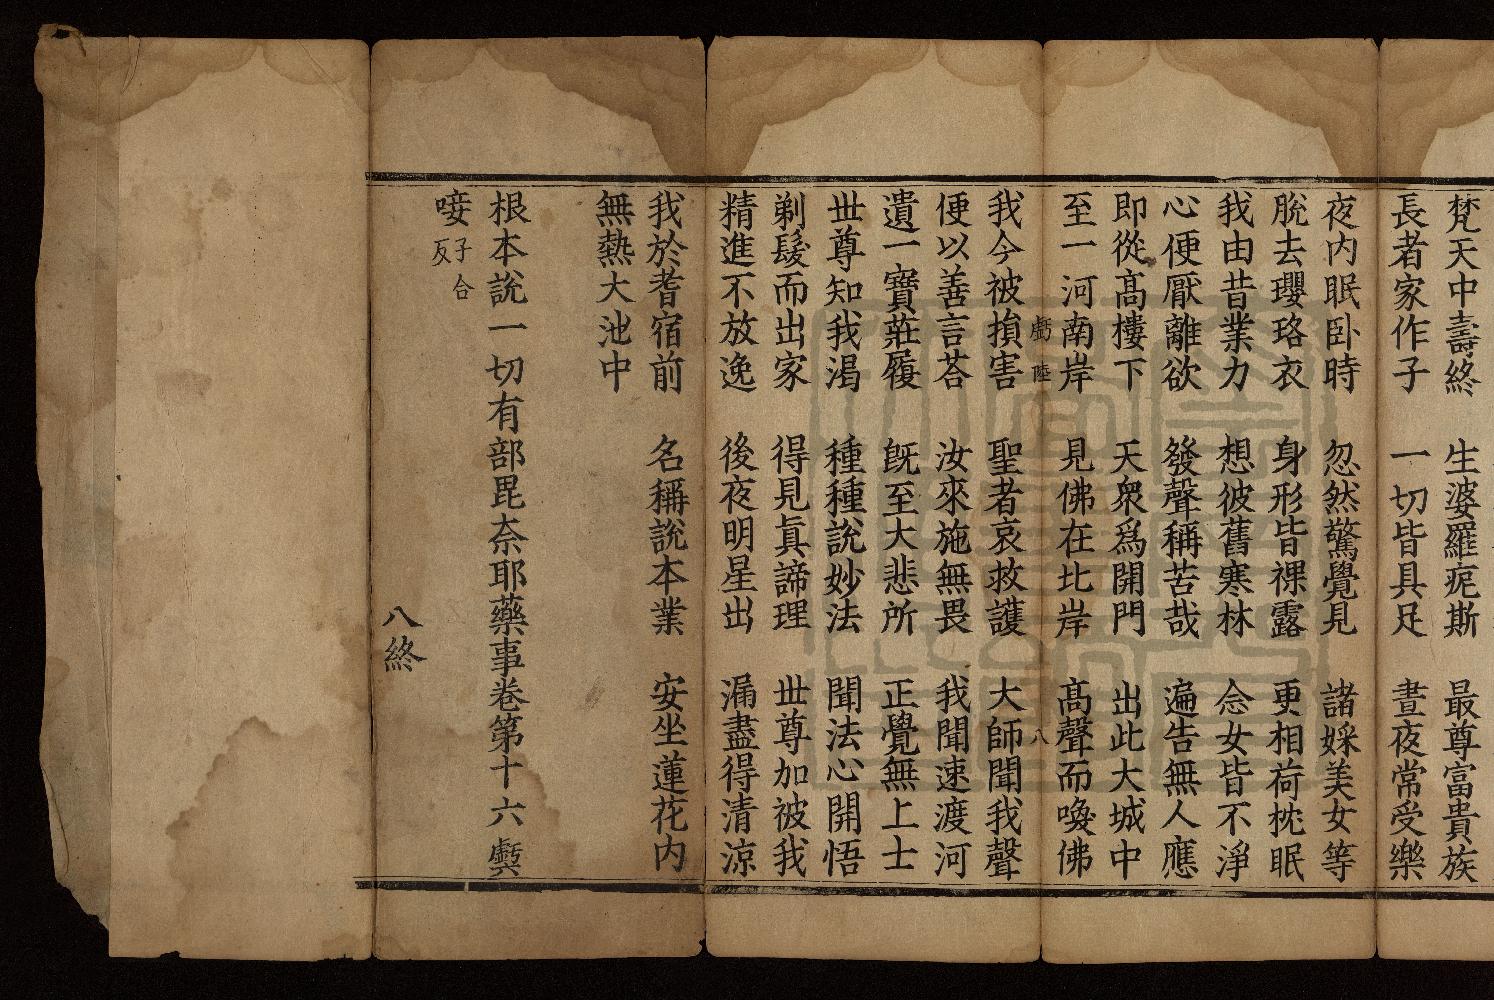 梵天中壽終　生婆羅痆斯　最尊富貴族
長者家作子　一切皆具足　晝夜常受樂
夜内眠卧時　忽然驚覺見　諸婇美女等
脫去瓔珞衣　身形皆裸露　更相荷枕眠
我由昔業力　想彼舊寒林　念女皆不淨
心便厭離欲　發聲稱苦哉　遍告無人應
即從髙樓下　天衆爲開門　出此大城中
至一河南岸　見佛在比岸　髙聲而喚佛
虧陸　八
我今被損害　聖者哀救護　大師聞我聲
便以善言荅　汝來施無畏　我聞速渡河
遺一寶莊履　旣至大悲所　正覺無上士
世尊知我渴　種種說妙法　聞法心開悟
剃髮而出家　得見眞諦理　世尊加被我
精進不放逸　後夜明星出　漏盡得清涼
我於耆宿前　名稱說本業　安坐蓮花内
無熱大池中
根本說一切有部毘奈耶藥事卷第十六
唼子合反
八終